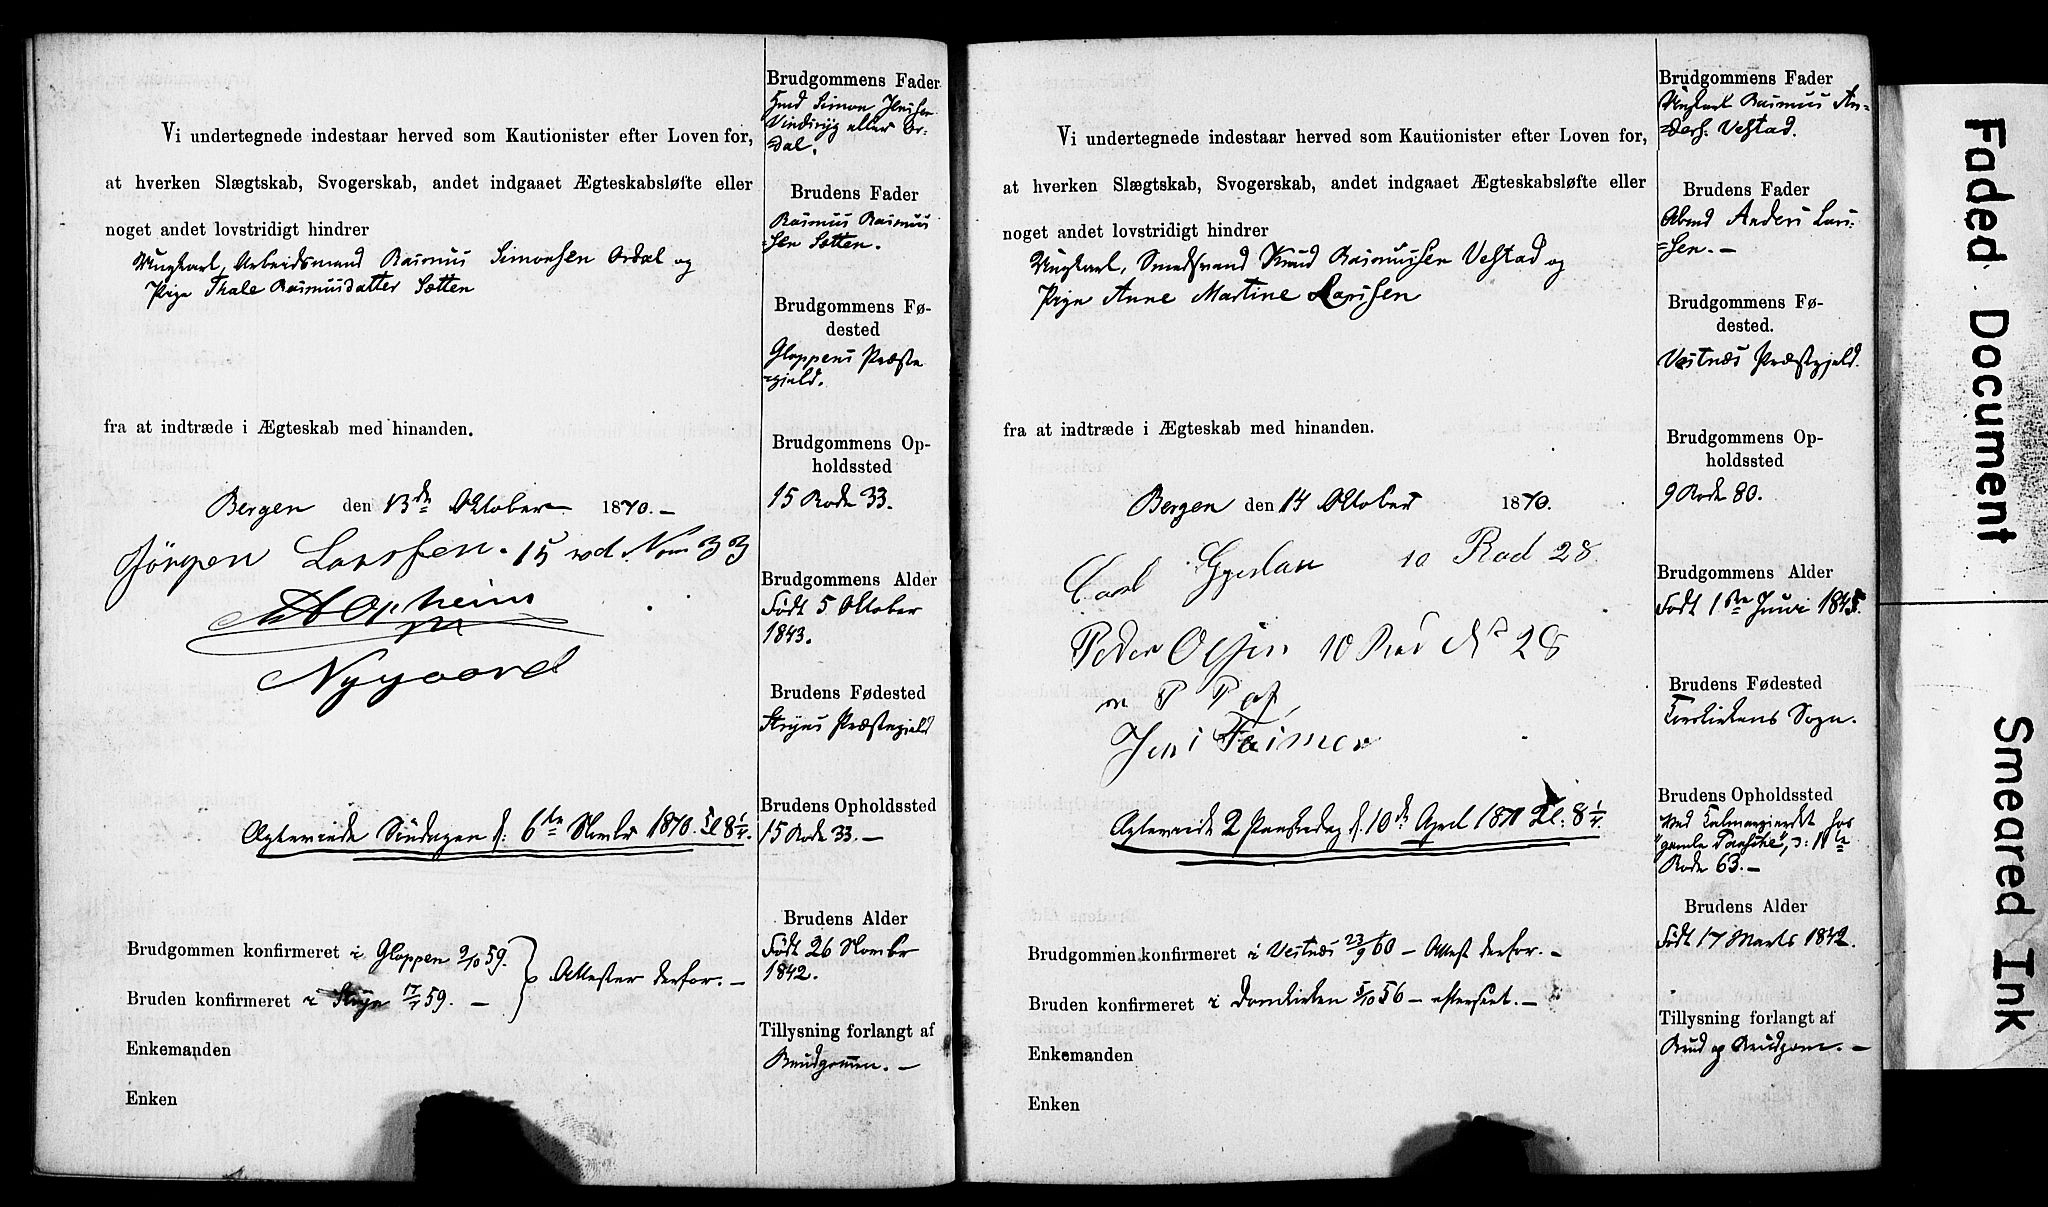 Vi undertegnede indestaar herved som Kautionister efter Loven for,
at hverken Slægtskab, Svogerskab, andet indgaaet Ægteskabsløfte eller
noget andet lovstridigt hindrer
Ungkarl, Arbeidsmand Rasmus Simonsen Ardal og
Pige Thale Rasmusdatter Sætten
fra at indtræde i Ægteskab med hinanden.
Bergen den 13de Oktober 1870.-
Jörgen Larssen. 15 rd. Nom 33
Nygaard
Agterviede Søndagen d: 6te Novbr 1870. Kl 8 1/4.
Brudgommen konfirmeret i Gloppen 9/10 59.
Attester derfor.-
Bruden konfirmeret i Stryn 17/7 59.-
Enkemanden
Enken
Brudgommens Fader
Simon Jensen
eller Ar-
dal.
Brudens Fader
Rasmus Rasmus
=sen Sætten.
Brudgommens Fø-
dested
Gloppens Præste
=gjeld.
Brudgommens Op-
holdssted
15 Rode 33.
Brudgommens Alder
Født 5 Oktober
1843.
Brudens Fødested
Stryns Præstegjeld
Brudens Opholdssted
15 Rode 33.-
Brudens Alder
Født 26 Novbr
1842.
Tillysning forlangt af
Brudgommen.-
Vi undertegnede indestaar herved som Kautionister efter Loven for,
at hverken Slægtskab, Svogerskab, andet indgaaet Ægteskabsløfte eller
noget andet lovstridigt hindrer
Ungkarl, Smedsvend Knud Rasmussen Vestad og
Pige Anne Martine Larssen
fra at indtræde i Ægteskab med hinanden.
Bergen den 14 Oktober 1870.
Carl 10 Rod 28.
Peder Olsen 10 Rod No 28
m P P af
Agterviede 2 Paaskedag d. 10de April 1871 Kl: 8 1/4.
Brudgommen konfirmeret i Vestnæs 23/9 60 - Attest derfor.-
Bruden konfirmeret i Domkirken 5/10 56 - efterseet.-
Enkemanden
Enken
Brudgommens Fader
Ungkarl Rasmus An-
=ders. Vestad.
Brudens Fader
Anders Lars-
=sen.-
Brudgommens Fø-
dested.
Vestnæs Præstegjeld.
Brudgommens Op-
holdssted
9 Rode 80.
Brudgommens Alder
Født 1ste Juni 1845.
Brudens Fødested
Korskirkens Sogn.
Brudens Opholdssted
Ved hos
"gamle 11te
Rode 63.-
Brudens Alder
Født 17 Marts 1842.
Tillysning forlangt af
Brud og Brudgom.-
Faded Document
Smeared Ink